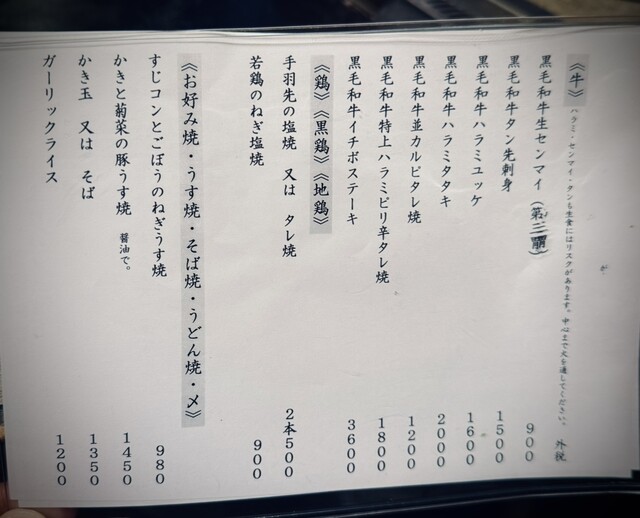 《牛》 ハラミ・センマイ・タンも生食にはリスクがあります。中心まで火を通してください。 外税
黒毛和牛生センマイ（第三胃） 900
黒毛和牛タン先刺身 1500
黒毛和牛ハラミユッケ 1600
黒毛和牛ハラミタタキ 2000
黒毛和牛並カルビタレ焼 1200
黒毛和牛特上ハラミピリ辛タレ焼 1800
黒毛和牛イチボステーキ 3600
《鶏》《黒鶏》《地鶏》
手羽先の塩焼 又は タレ焼 2本500
若鶏のねぎ塩焼 900
《お好み焼・うす焼・そば焼・うどん焼・〆》
すじコンとごぼうのねぎうす焼 980
かきと菊菜の豚うす焼 醤油で。 1450
かき玉 又は そば 1350
ガーリックライス 1200